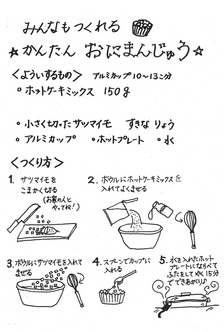 みんなもつくれる
☆かんたん おにまんじゅう☆
<よういするもの> アルミカップ10〜13こ分
・ホットケーキミックス 150g
・小さく切ったサツマイモ すきなりょう
・アルミカップ ・ホットプレート ・水
<つくり方>
1. サツマイモを
こまかく切る
(お家の人と
やってね!)
2. ボウルにホットケーキミックスを
入れてよくまぜる
3. ボウルにサツマイモを入れて
まぜる
4. スプーンでカップに
入れる
5. 水を入れたホット
プレートにならべて
ふたをして 15
でできあがり♪